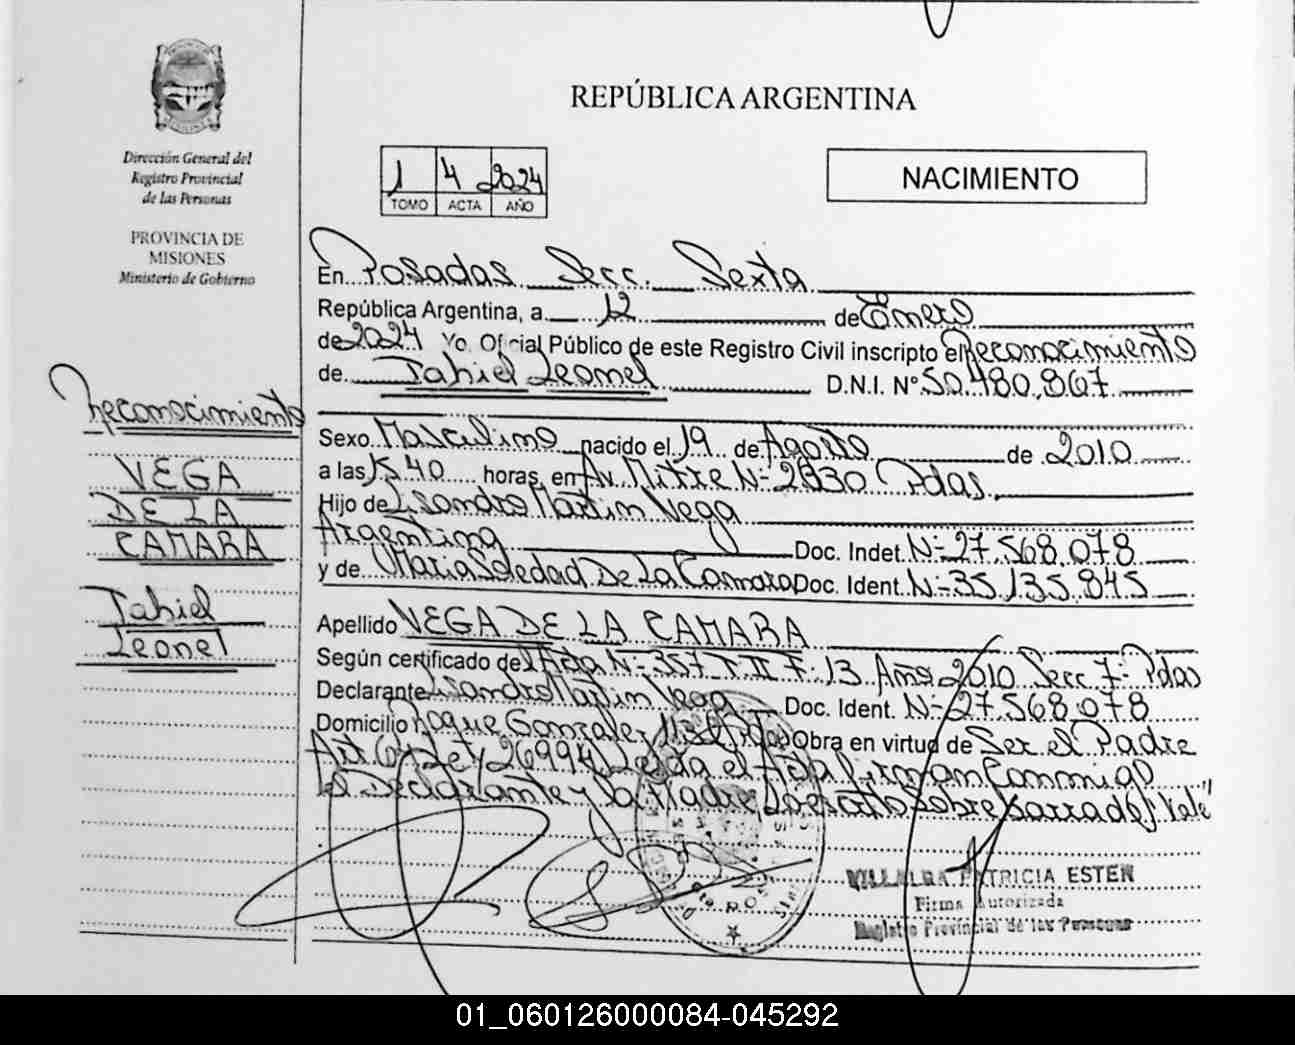 REPÚBLICA ARGENTINA
Dirección General del
Registro Provincial
de las Personas
PROVINCIA DE
MISIONES
Ministerio de Gobierno
1 4 2024
TOMO ACTA AÑO
NACIMIENTO
En Posadas Secc. Sexta
República Argentina, a 12 de Enero
de 2024 Yo Oficial Público de este Registro Civil inscripto el Reconocimiento
de Tahiel Leonel D.N.I. Nº 50.480.867
Reconocimiento
VEGA
DE LA
CAMARA
Tahiel
Leonel
Sexo Masculino nacido el 19 de Agosto de 2010
a las 15 40 horas, en Av. Mitre Nº Pdas.
Hijo de Lisandro Martin Vega
Argentina Doc. Indet. Nº 27.568.078
y de Maria Soledad De La Camara Doc. Ident. Nº 35.135.845
Apellido VEGA DE LA CAMARA
Según certificado de Acta Nº 357 T II F. 13 Año 2010 Secc 7º Pdas
Declarante Lisandro Martin Vega Doc. Ident. Nº 27.568.078
Domicilio Roque Gonzalez Pdas Obra en virtud de Ser el Padre
Art. Ley 26994 Leída el Acta Firman Conmigo
el Declarante y la Madre Lo escrito sobre borrado "Vale"
VILLALBA PATRICIA ESTER
Firma Autorizada
Registro Provincial de las Personas
01_060126000084-045292